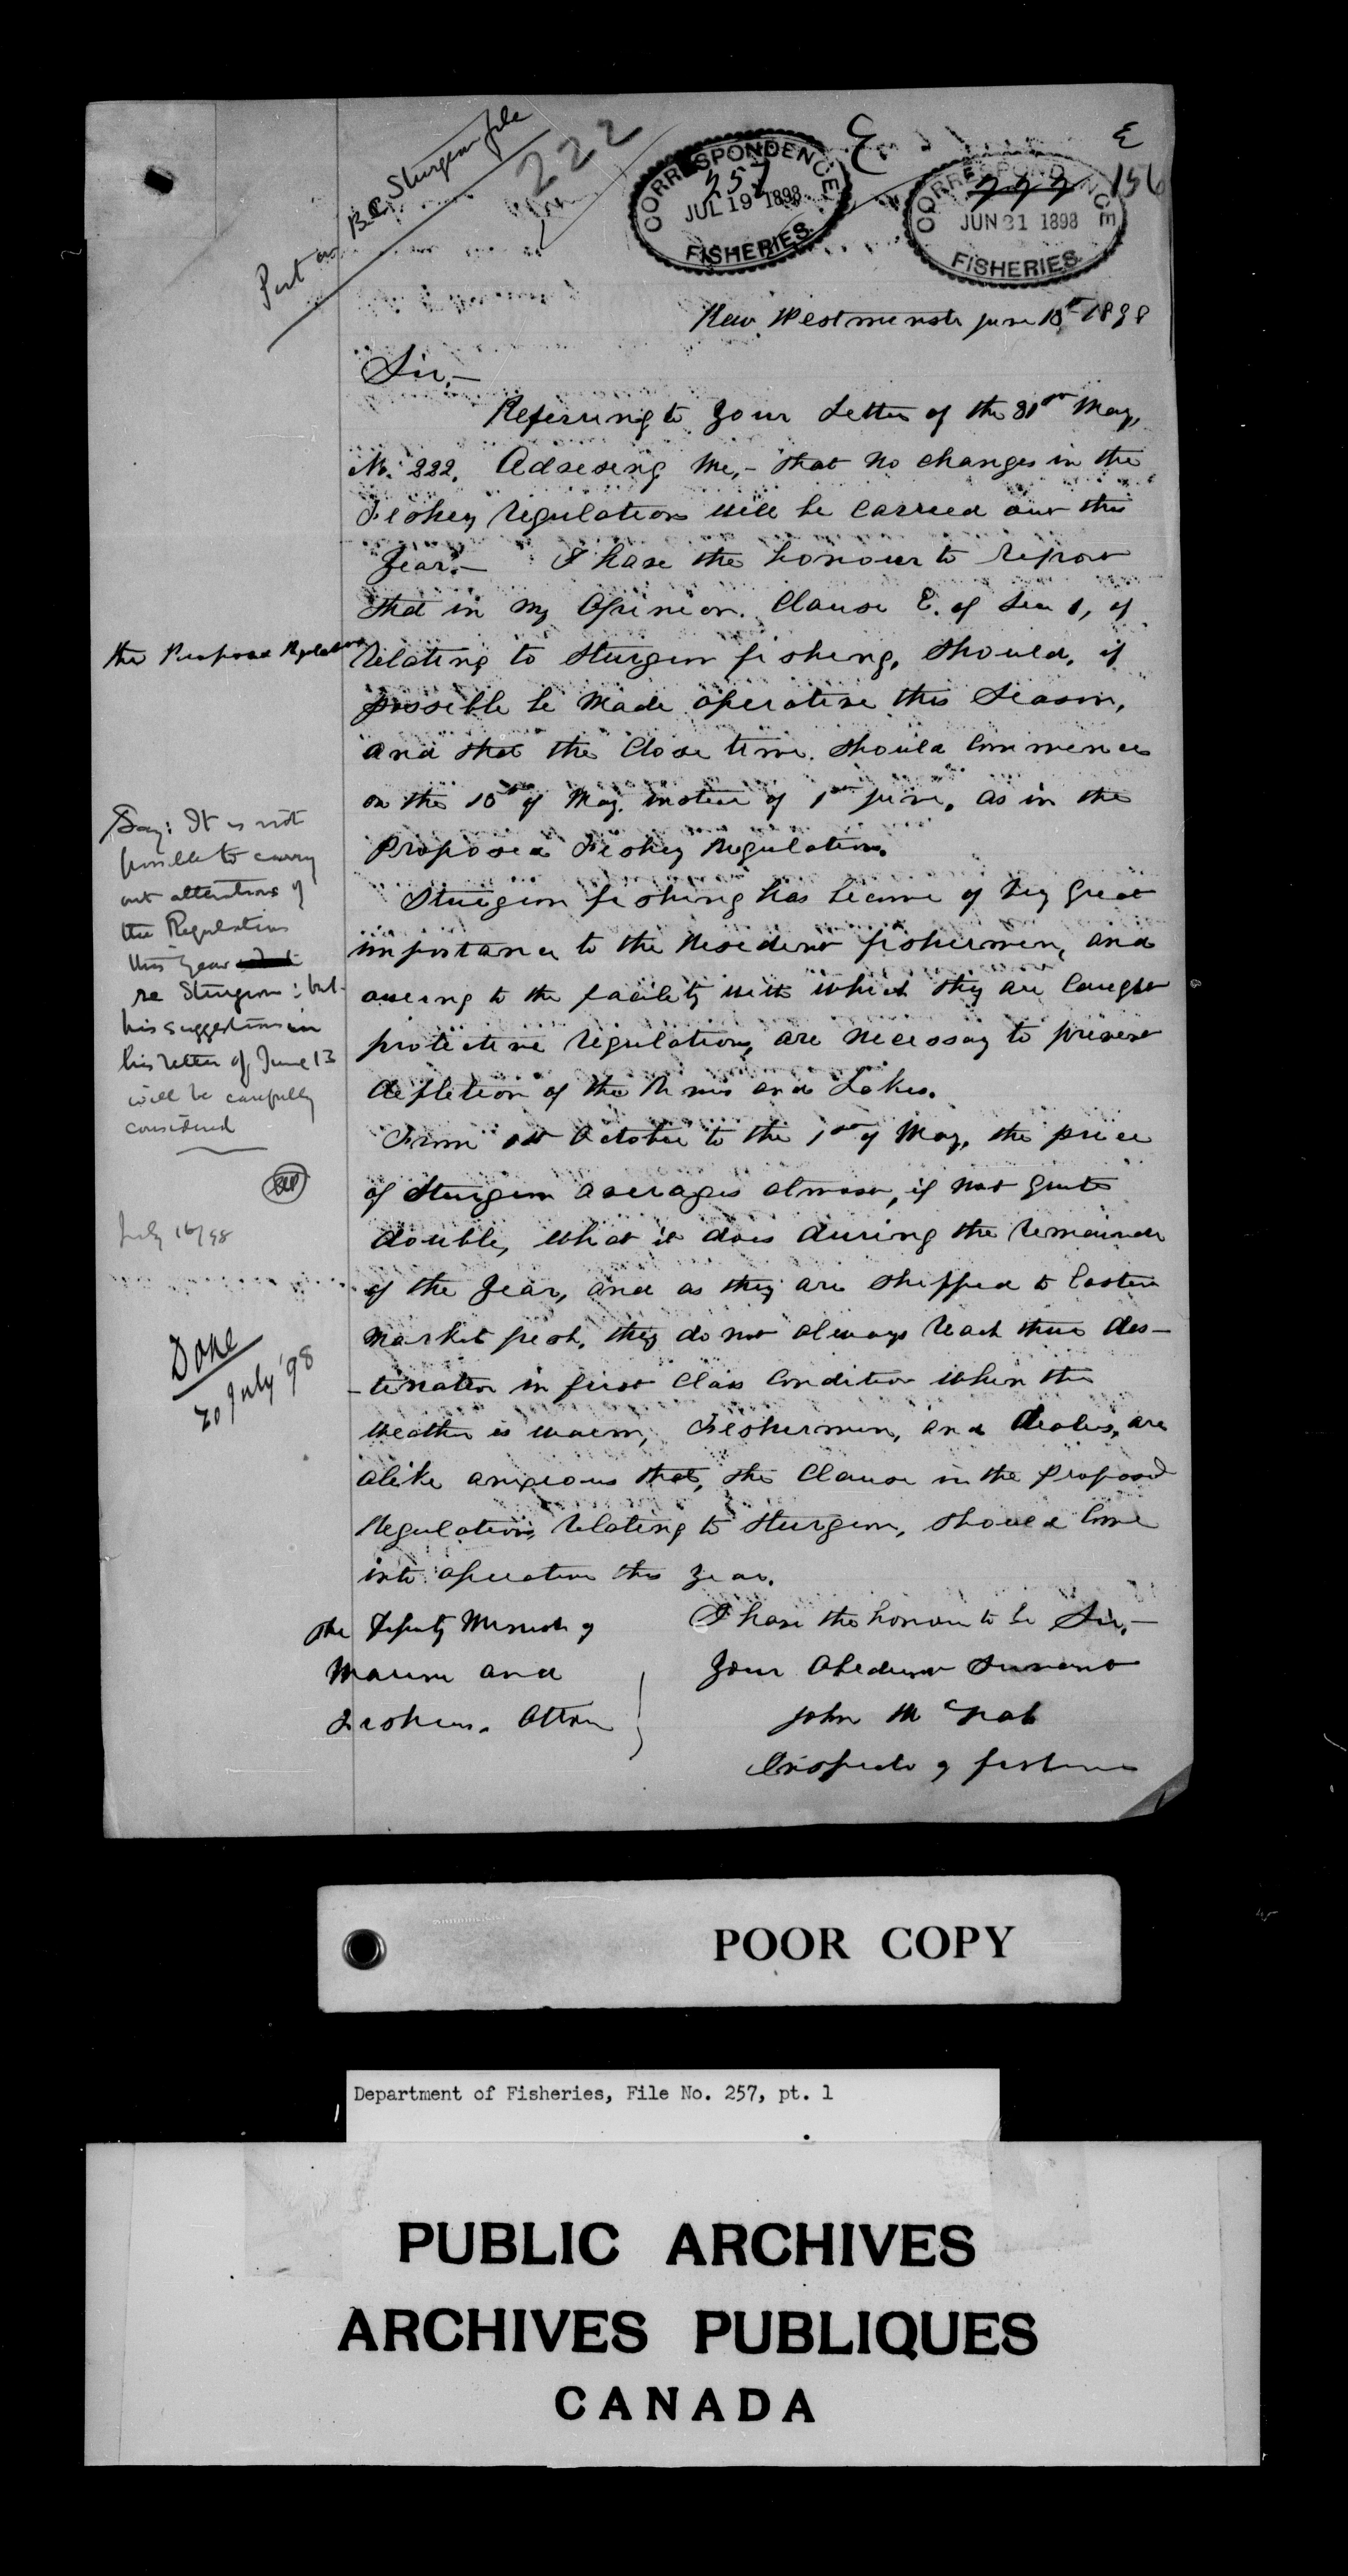 Put on B.C. Sturgeon file
222
CORRESPONDENCE
257
JUL 19 1898
FISHERIES
E
CORRESPONDENCE
JUN 21 1898
FISHERIES
E
156
New Westminster June 13th 1898
Sir,—
Referring to your letter of the 31st May,
No. 222. Advising me,— that no changes in the
Fishery regulations will be carried out this
year.— I have the honour to report
that in my opinion. Clause E. of Sec 1, of
the Proposed Regulations
relating to sturgeon fishing, should, if
possible be made operative this season,
and that the close time should commence
on the 15th of May instead of 1st June, as in the
Proposed Fishery Regulations.
Sturgeon fishing has become of very great
importance to the resident fishermen, and
owing to the facility with which they are caught
protective regulations, are necessary to prevent
depletion of the Rivers and Lakes.
From 1st October to the 1st of May, the price
of sturgeon averages almost, if not quite
double, what it does during the remainder
of the year, and as they are shipped to Eastern
market fresh, they do not always reach their des-
-tination in first class condition when the
weather is warm, Fishermen, and dealers, are
alike anxious that, the Clause in the proposed
Regulations, relating to sturgeon, should come
into operation this year.
I have the honour to be Sir,—
Your Obedient Servant
John McNab
Inspector of fisheries
The Deputy Minister of
Marine and
Fisheries. Ottawa
Say: It is not
possible to carry
out alterations of
the Regulations
this year
re Sturgeon: but
his suggestions in
his letter of June 13
will be carefully
considered
July 16/98
Done
20 July '98
POOR COPY
Department of Fisheries, File No. 257, pt. 1
PUBLIC ARCHIVES
ARCHIVES PUBLIQUES
CANADA